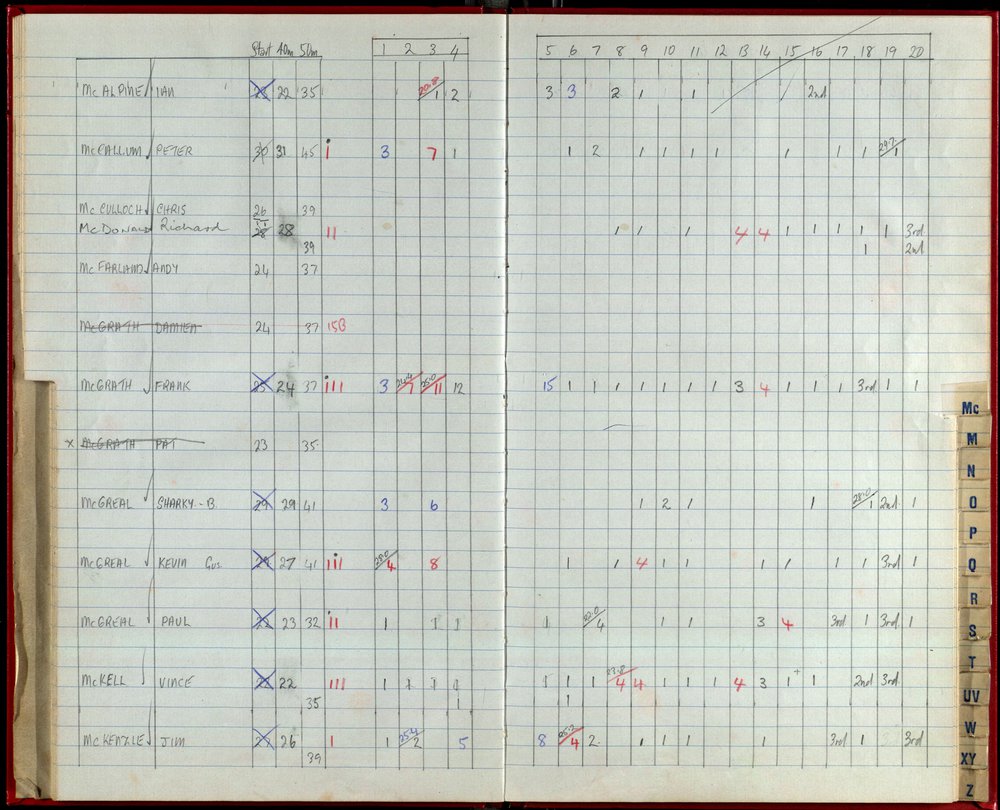 Start 40m 50m 1 2 3 4 5 6 7 8 9 10 11 12 13 14 15 16 17 18 19 20
McALPINE IAN 22 35 20.8 1 2 3 3 2 1 1 2nd
McCALLUM PETER 30 31 45 i 3 7 1 1 2 1 1 1 1 1 1 1 29.7 1
McCULLOCH CHRIS 26 39
McDONALD Richard 28 28 II 1 1 1 4 4 1 1 1 1 1 3rd
39 1 2nd
McFARLAND ANDY 24 37
McGRATH DAMIEN 24 37 15B
McGRATH FRANK 25 24 37 III 3 24.4 7 25.0 11 12 15 1 1 1 1 1 1 1 3 4 1 1 1 3rd 1 1
x McGRATH PAT 23 35
McGREAL SHARKY - B 29 29 41 3 6 1 2 1 1 28.0 1 2nd 1
McGREAL KEVIN Gus 27 41 III 28.0 4 8 1 1 4 1 1 1 1 1 1 3rd 1
McGREAL PAUL 23 32 II 1 1 1 1 4 1 1 3 4 3rd 1 3rd 1
McKELL VINCE 22 III 1 1 1 1 1 1 1 23.8 4 4 1 1 1 4 3 1 + 1 2nd 3rd
35 1 1
McKENZLE JIM 26 I 1 25.4 2 5 8 25.2 4 2 1 1 1 1 3rd 1 3rd
39
Mc
M
N
O
P
Q
R
S
T
UV
W
XY
Z